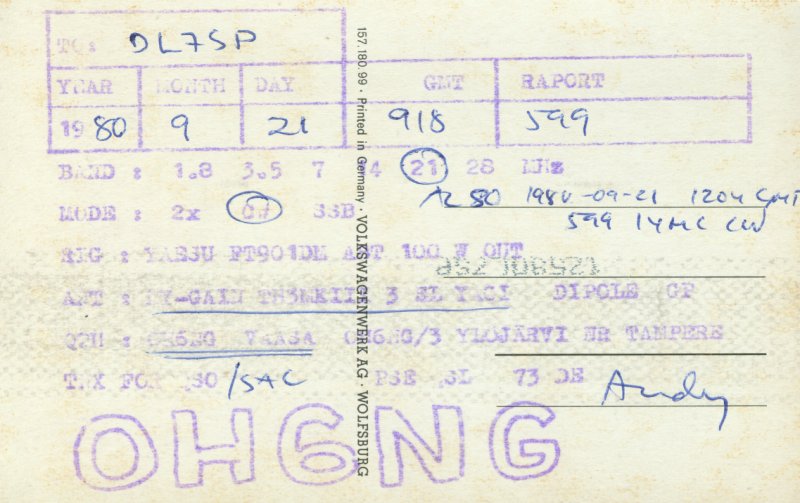 TO: DL7SP
YEAR MONTH DAY GMT RAPORT
1980 9 21 918 599
BAND : 1.8 3.5 7 14 21 28 MHz
MODE : 2x CW SSB
1980-09-21 1204 GMT
599 14MC CW
RIG : YAESU FT901DM ABT 100 W OUT
ANT : HY-GAIN TH3MKIII 3 EL YAGI DIPOLE GP
QTH : OH6NG VAASA OH6NG/3 YLÖJÄRVI NR TAMPERE
TNX FOR QSO /SAC PSE QSL 73 DE Andy
OH6NG
157.180.99 · Printed in Germany · VOLKSWAGENWERK AG · WOLFSBURG